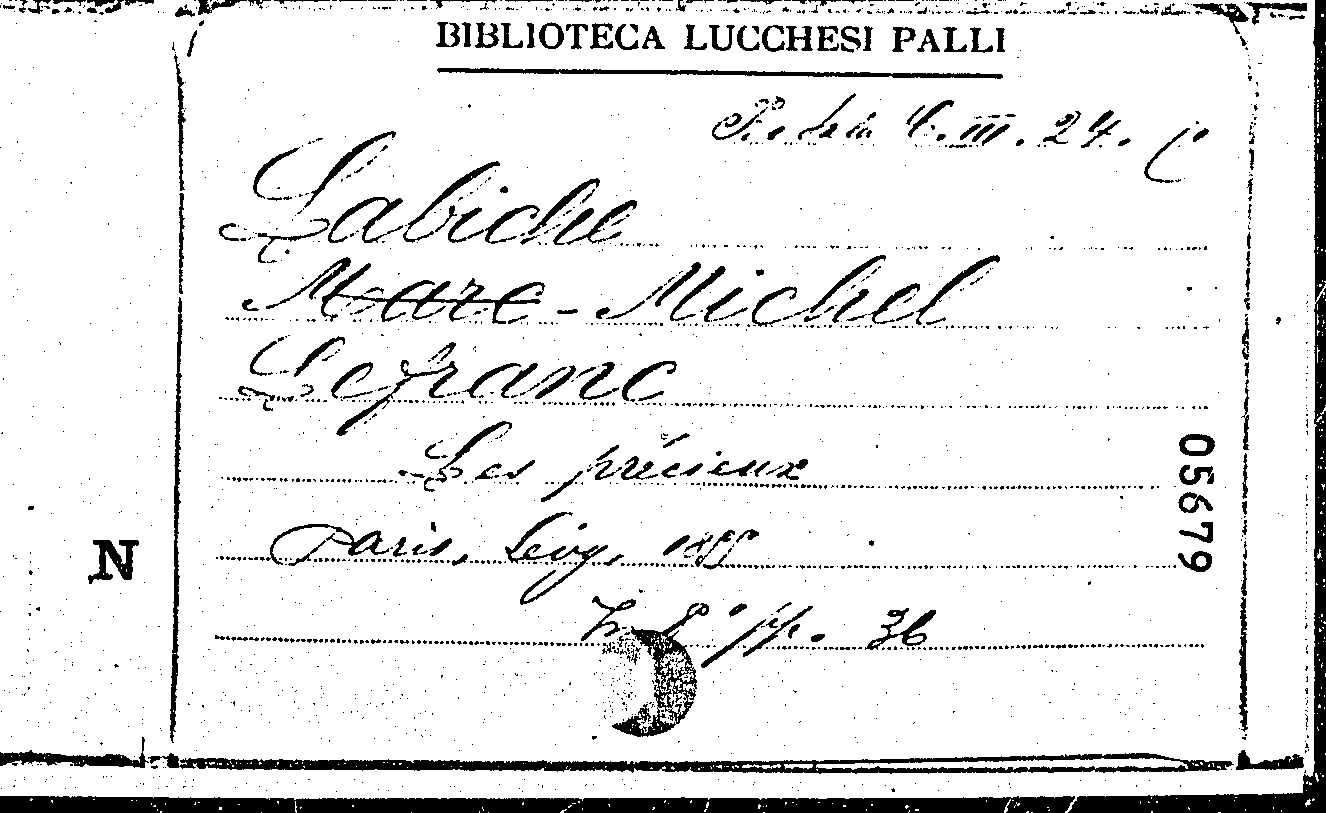 BIBLIOTECA LUCCHESI PALLI
C. III. 24.
Labiche
Marc-Michel
Lefranc
Les précieux
Paris, Lévy,
05679
N
In 8° pp. 36